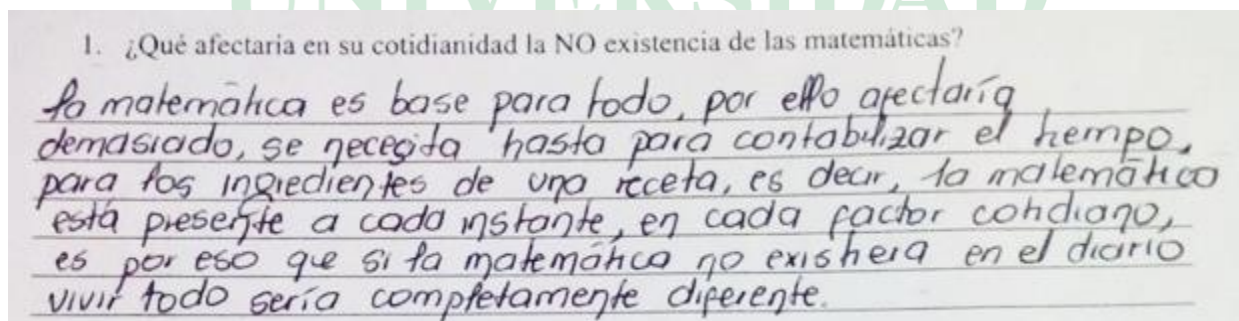 UNIVERSIDAD
1. ¿Qué afectaría en su cotidianidad la NO existencia de las matemáticas?
la matemática es base para todo, por ello afectaría
demasiado, se necesita hasta para contabilizar el tiempo,
para los ingredientes de una receta, es decir, la matemática
está presente a cada instante, en cada factor cotidiano,
es por eso que si la matemática no existiera en el diario
vivir todo sería completamente diferente.